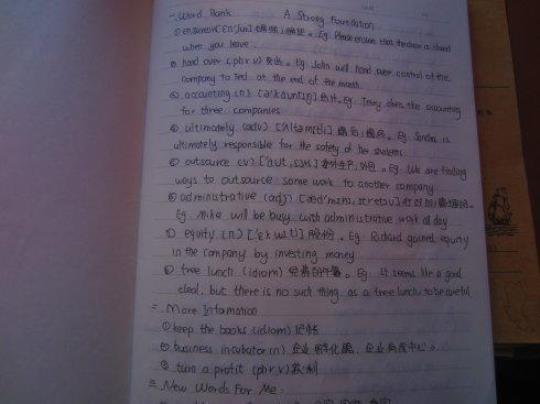 一. Word Bank A Strong Foundation
① ensure(v) [ɪn'ʃʊr] 确保; 确定. Eg. Please ensure that the door is closed
when you leave.
② hand over (phr v) 交出. Eg. John will hand over control of the
company to Ted at the end of the month.
③ accounting (n) [ə'kaʊntɪŋ] 会计. Eg. Jenny does the accounting
for three companies
④ ultimately (adv) 最后; 最终. Eg. Sandra is
ultimately responsible for the safety of her students
⑤ outsource (v) 外包. Eg. We are finding
ways to outsource some work to another company
⑥ administrative (adj)
Eg. Mike will be busy with administrative work all day
⑦ equity (n) ['ɛkwətɪ] 股份. Eg. Richard gained equity
in the company by investing money
⑧ free lunch (idiom) 免费的午餐. Eg. It seems like a good
deal, but there is no such thing as a free lunch, so be careful
二. More Information
① keep the books (idiom) 记帐
② business incubator(n) 企业孵化器, 企业育成中心.
③ turn a profit (phr v) 获利
三. New Words For Me.